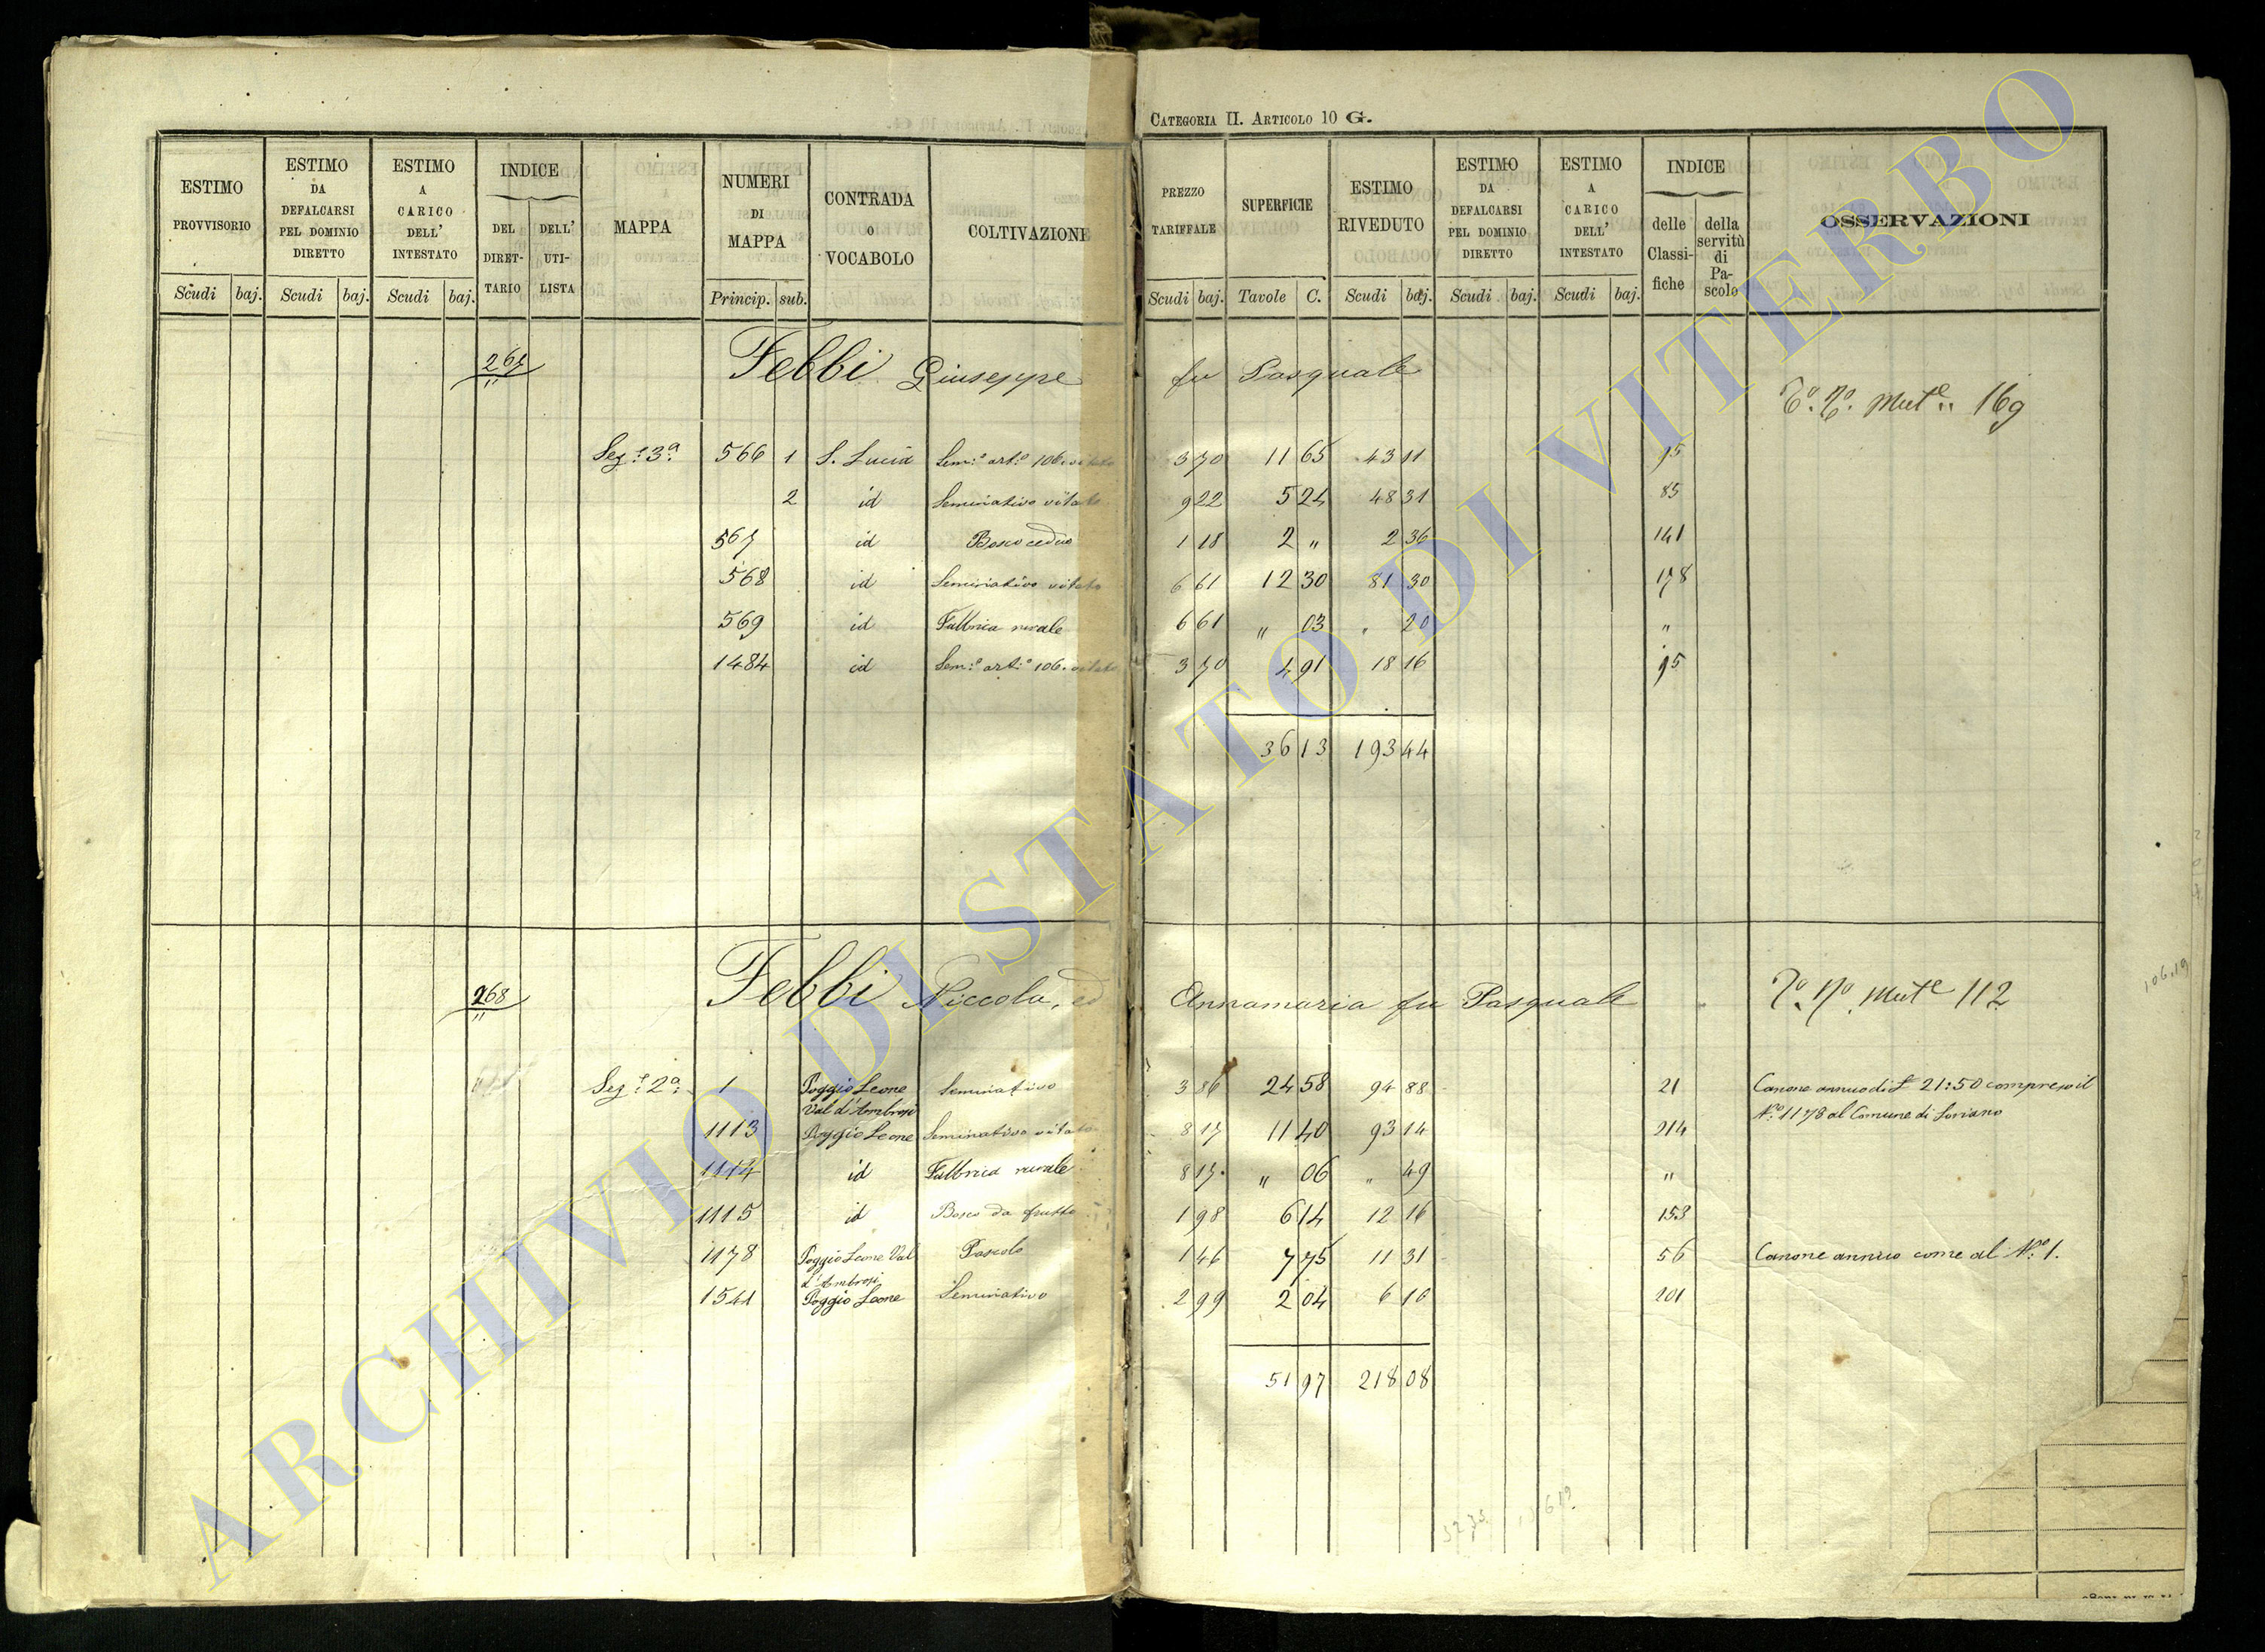 CATEGORIA II. ARTICOLO 10 G.
ESTIMO PROVVISORIO | ESTIMO DA DEFALCARSI PEL DOMINIO DIRETTO | ESTIMO A CARICO DELL' INTESTATO | INDICE DEL DIRET- TARIO | DELL' UTI- LISTA | MAPPA | NUMERI DI MAPPA | CONTRADA O VOCABOLO | COLTIVAZIONE | PREZZO TARIFFALE | SUPERFICIE | ESTIMO RIVEDUTO | ESTIMO DA DEFALCARSI PEL DOMINIO DIRETTO | ESTIMO A CARICO DELL' INTESTATO | INDICE delle Classi- fiche | della servitù di Pa- scolo | OSSERVAZIONI
Scudi baj. Scudi baj. Scudi baj. Princip. sub. Scudi baj. Tavole C. Scudi baj. Scudi baj. Scudi baj.
267 Febbi Giuseppe fu Pasquale
Tº. Nº. Mutᵉ.. 169
Sezᵉ 3ª 566 1 S. Lucia Semº artº 106. vitato 3 70 11 65 43 11 95
2 id Seminativo vitato 9 22 5 24 48 31 85
567 id Bosco ceduo 1 18 2 " 2 36 141
568 id Seminativo vitato 6 61 12 30 81 30 178
569 id Fabbrica rurale 6 61 " 03 " 20 "
1484 id Semº artº 106. vitato 3 70 4 91 18 16 95
36 13 193 44
268 Febbi Niccola, ed Annamaria fu Pasquale
Tº. Nº. Mutᵉ 112
Sezᵉ 2ª 1 Poggio Leone Val d'Ambrosi Seminativo 3 86 24 58 94 88 21 Canone annuo di £ 21:50 compreso il
Nº 1178 al Comune di Soriano
1113 Poggio Leone Seminativo vitato 8 17 11 40 93 14 214
1114 id Fabbrica rurale 8 17 " 06 " 49 "
1115 id Bosco da frutto 1 98 6 14 12 16 153
1178 Poggio Leone Val d'Ambrosi Pascolo 1 46 7 75 11 31 56 Canone annuo come al Nº 1.
1541 Poggio Leone Seminativo 2 99 2 04 6 10 201
51 97 218 08
106.19
ARCHIVIO DI STATO DI VITERBO